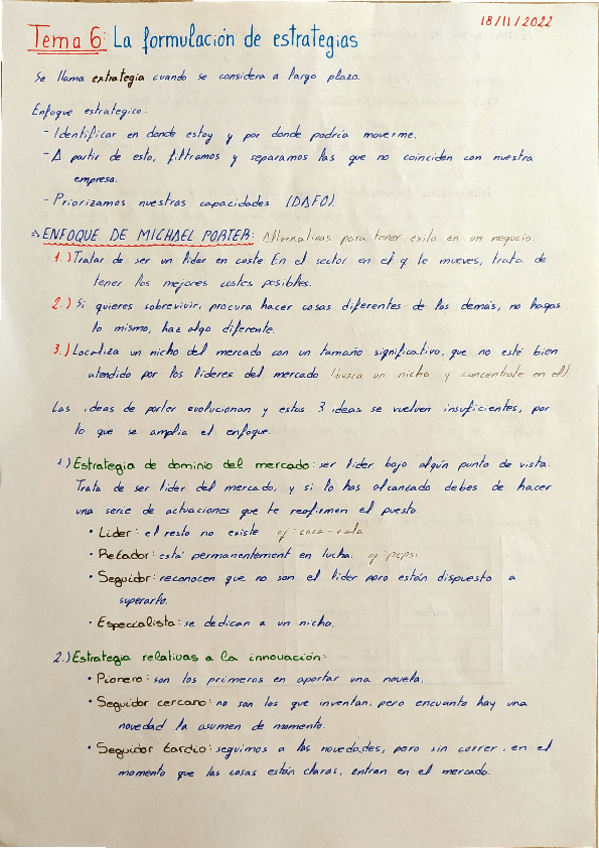 18/11/2022
Tema 6: La formulación de estrategias
Se llama extrategia cuando se considera a largo plazo.
Enfoque estrategico:
- Identificar en donde estoy y por donde podria moverme.
- A partir de esto, filtramos y separamos las que no coinciden con nuestra
empresa.
- Priorizamos nuestras capacidades (DAFO).
⇒ ENFOQUE DE MICHAEL PORTER: Alternativas para tener exito en un negocio.
1.) Tratar de ser un lider en coste. En el sector en el q te mueves, trata de
tener los mejores costes posibles.
2.) Si quieres sobrevivir, procura hacer cosas diferentes de los demás, no hagas
lo mismo, haz algo diferente.
3.) Localiza un nicho del mercado con un tamaño significativo, que no esté bien
atendido por los lideres del mercado (busca un nicho y concentrate en el)
Las ideas de porter evolucionan y estas 3 ideas se vuelven insuficientes, por
lo que se amplia el enfoque.
1.) Estrategia de dominio del mercado: ser lider bajo algún punto de vista.
Trata de ser lider del mercado, y si lo has alcanzado debes de hacer
una serie de actuaciones que te reafirmen el puesto.
• Lider: el resto no existe ej: coca-cola
• Retador: está permanentement en lucha. ej: pepsi
• Seguidor: reconocen que no son el lider pero están dispuesto a
superarlo.
• Especialista: se dedican a un nicho.
2.) Estrategia relativas a la innovación:
• Pionero: son los primeros en aportar una novela.
• Seguidor cercano: no son los que inventan, pero encuanto hay una
novedad la asumen de momento.
• Seguidor tardio: seguimos a las novedades, pero sin correr, en el
momento que las cosas están claras, entran en el mercado.